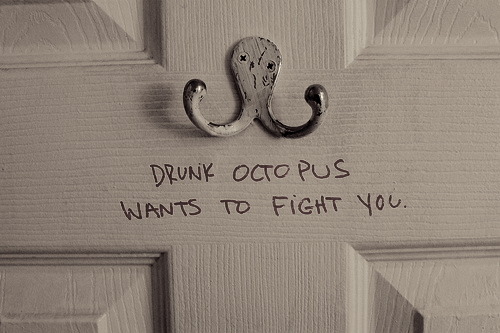 DRUNK OCTOPUS
WANTS TO FIGHT YOU.